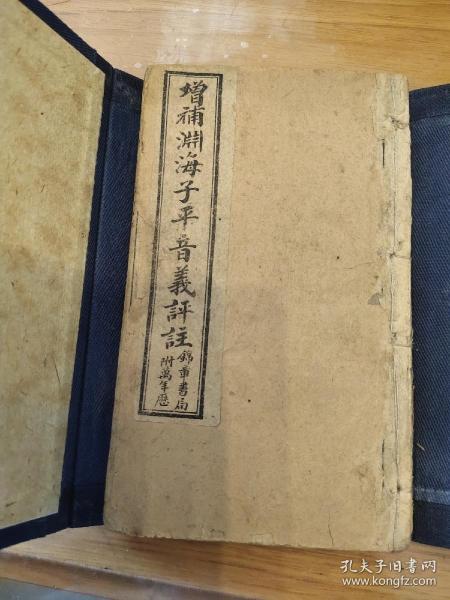 增補淵海子平音義評註
錦章書局
附萬年歷
孔夫子旧书网
www.kongfz.com